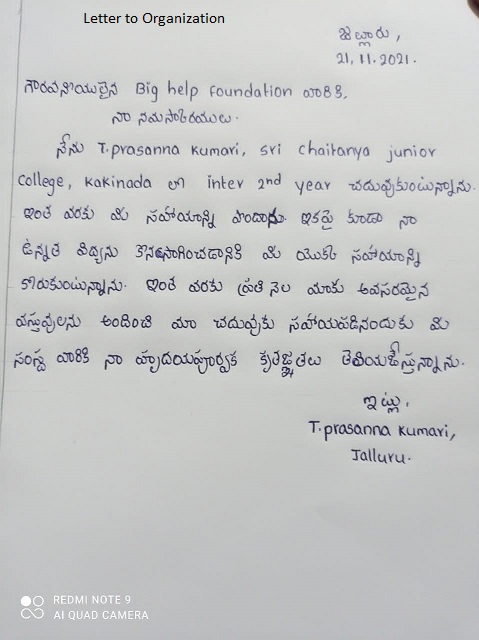 Letter to Organization
జల్లూరు,
21.11.2021.
గౌరవనీయులైన Big help foundation వారికి,
నా నమస్కారములు.
నేను T.prasanna kumari, sri chaitanya junior
college, kakinada లో inter 2nd year చదువుకుంటున్నాను.
ఇంత వరకు మీ సహాయాన్ని పొందాను. ఇకపై కూడా నా
ఉన్నత విద్యను కొనసాగించడానికి మీ యొక్క సహాయాన్ని
కోరుకుంటున్నాను. ఇంత వరకు ప్రతి నెల మాకు అవసరమైన
వస్తువులను అందించి మా చదువుకు సహాయపడినందుకు మీ
సంస్థ వారికి నా హృదయపూర్వక కృతజ్ఞతలు తెలియజేస్తున్నాను.
ఇట్లు,
T.prasanna kumari,
Jalluru.
REDMI NOTE 9
AI QUAD CAMERA